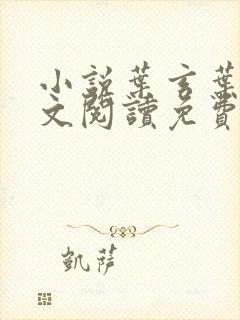 小說葉言葉
文閱讀免費
凱薩